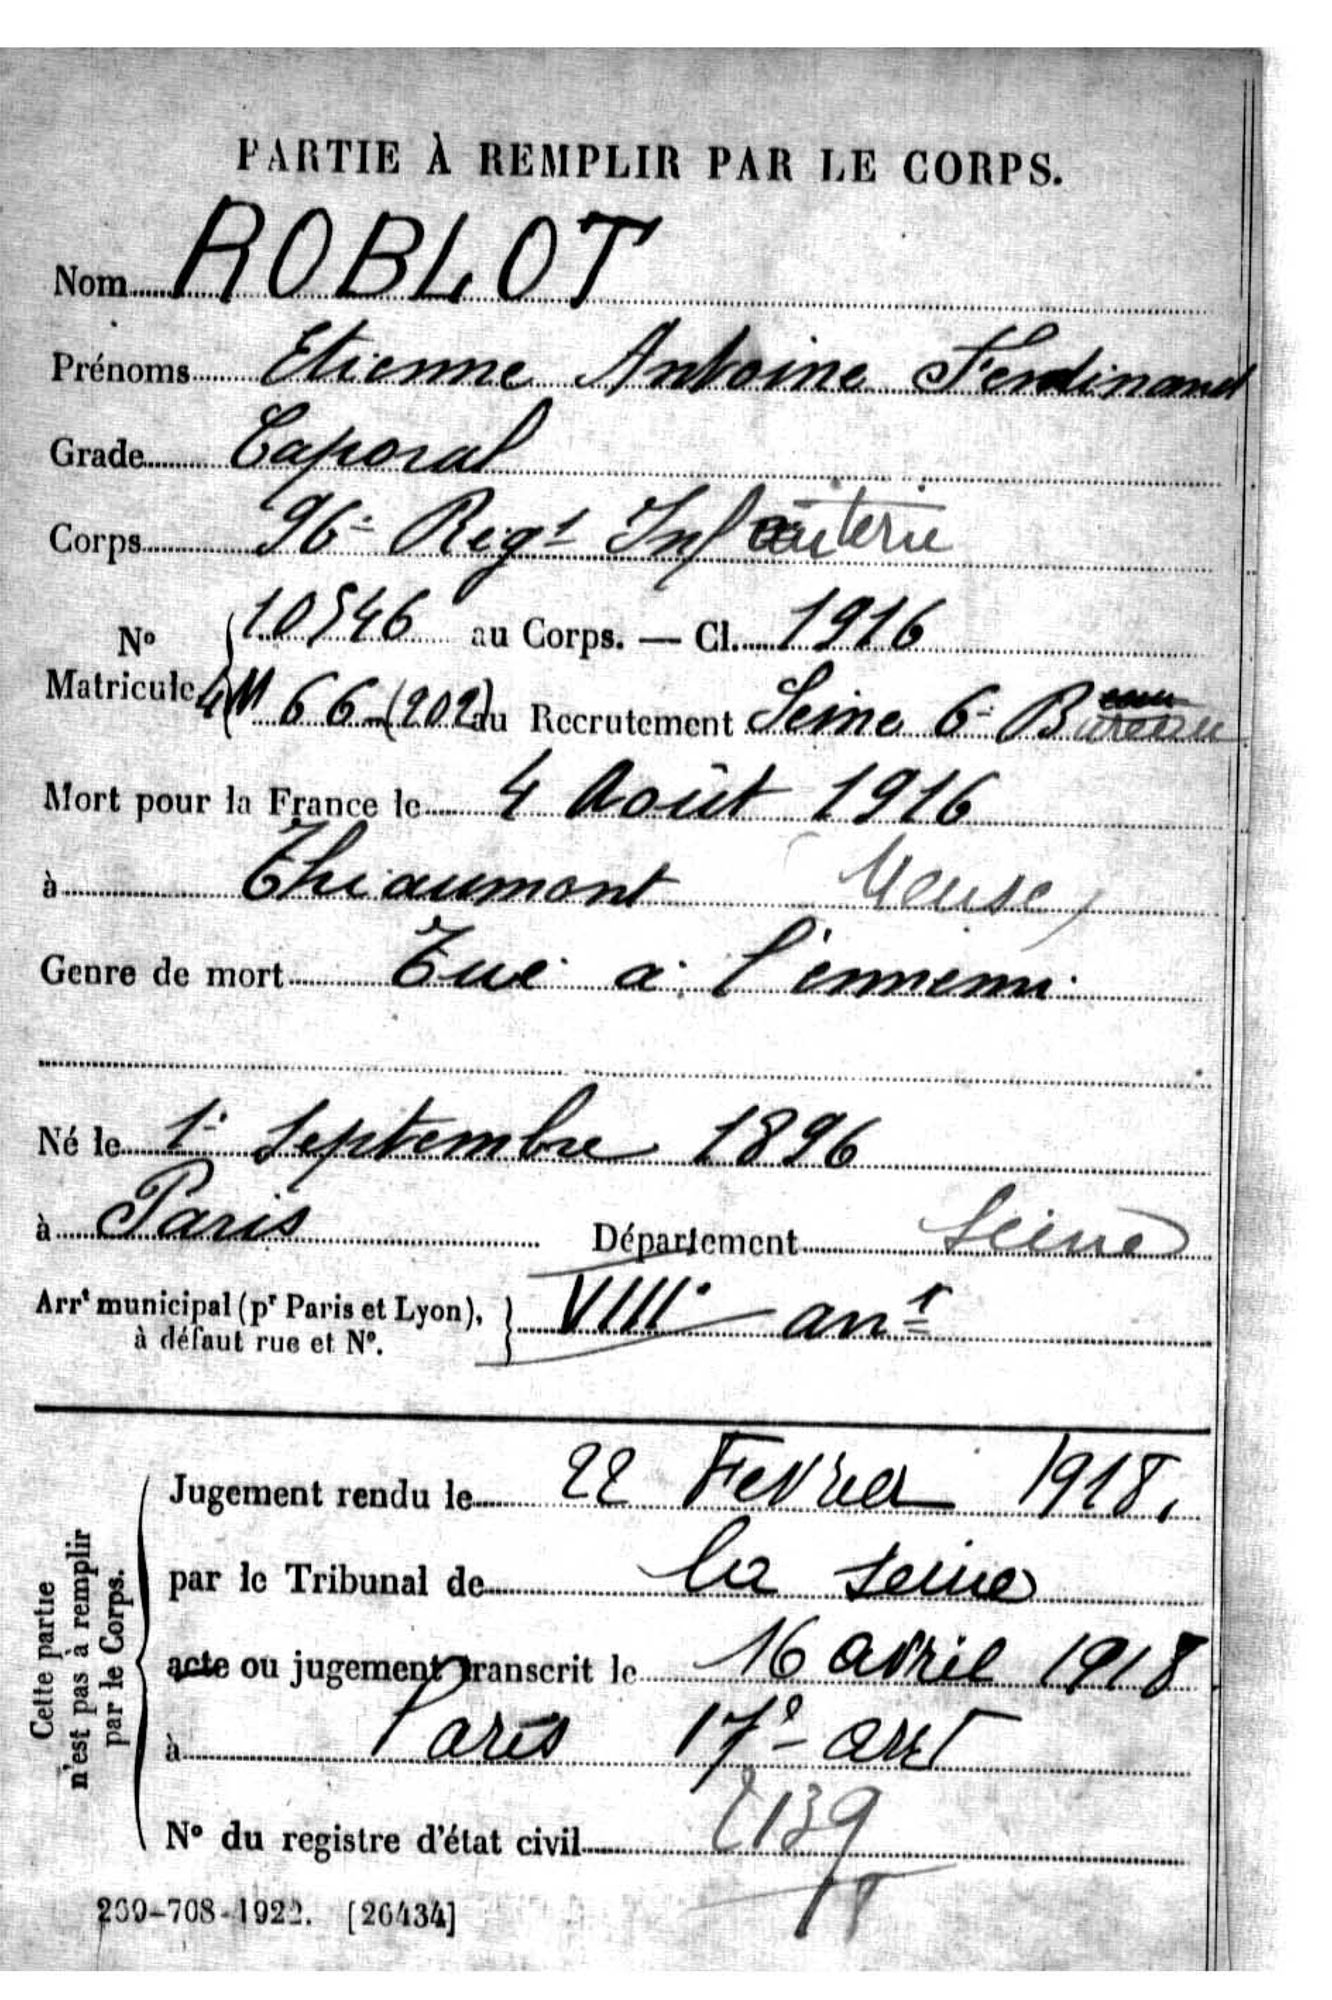 PARTIE À REMPLIR PAR LE CORPS.
Nom ROBLOT
Prénoms Etienne Antoine Ferdinand
Grade Caporal
Corps 96e Regt Infanterie
No Matricule 10546 au Corps. — Cl. 1916
4M 66 (202) au Recrutement Seine 6e Bureau
Mort pour la France le 4 Août 1916
à Thiaumont (Meuse)
Genre de mort Tué à l'ennemi
Né le 1er Septembre 1896
à Paris Département Seine
Arrt municipal (pr Paris et Lyon), VIIIe arrt
à défaut rue et No.
Cette partie n'est pas à remplir par le Corps.
Jugement rendu le 22 Fevrier 1918.
par le Tribunal de la Seine
acte ou jugement transcrit le 16 avril 1918
à Paris 17e arrt
No du registre d'état civil
269-708-1922. [26434]